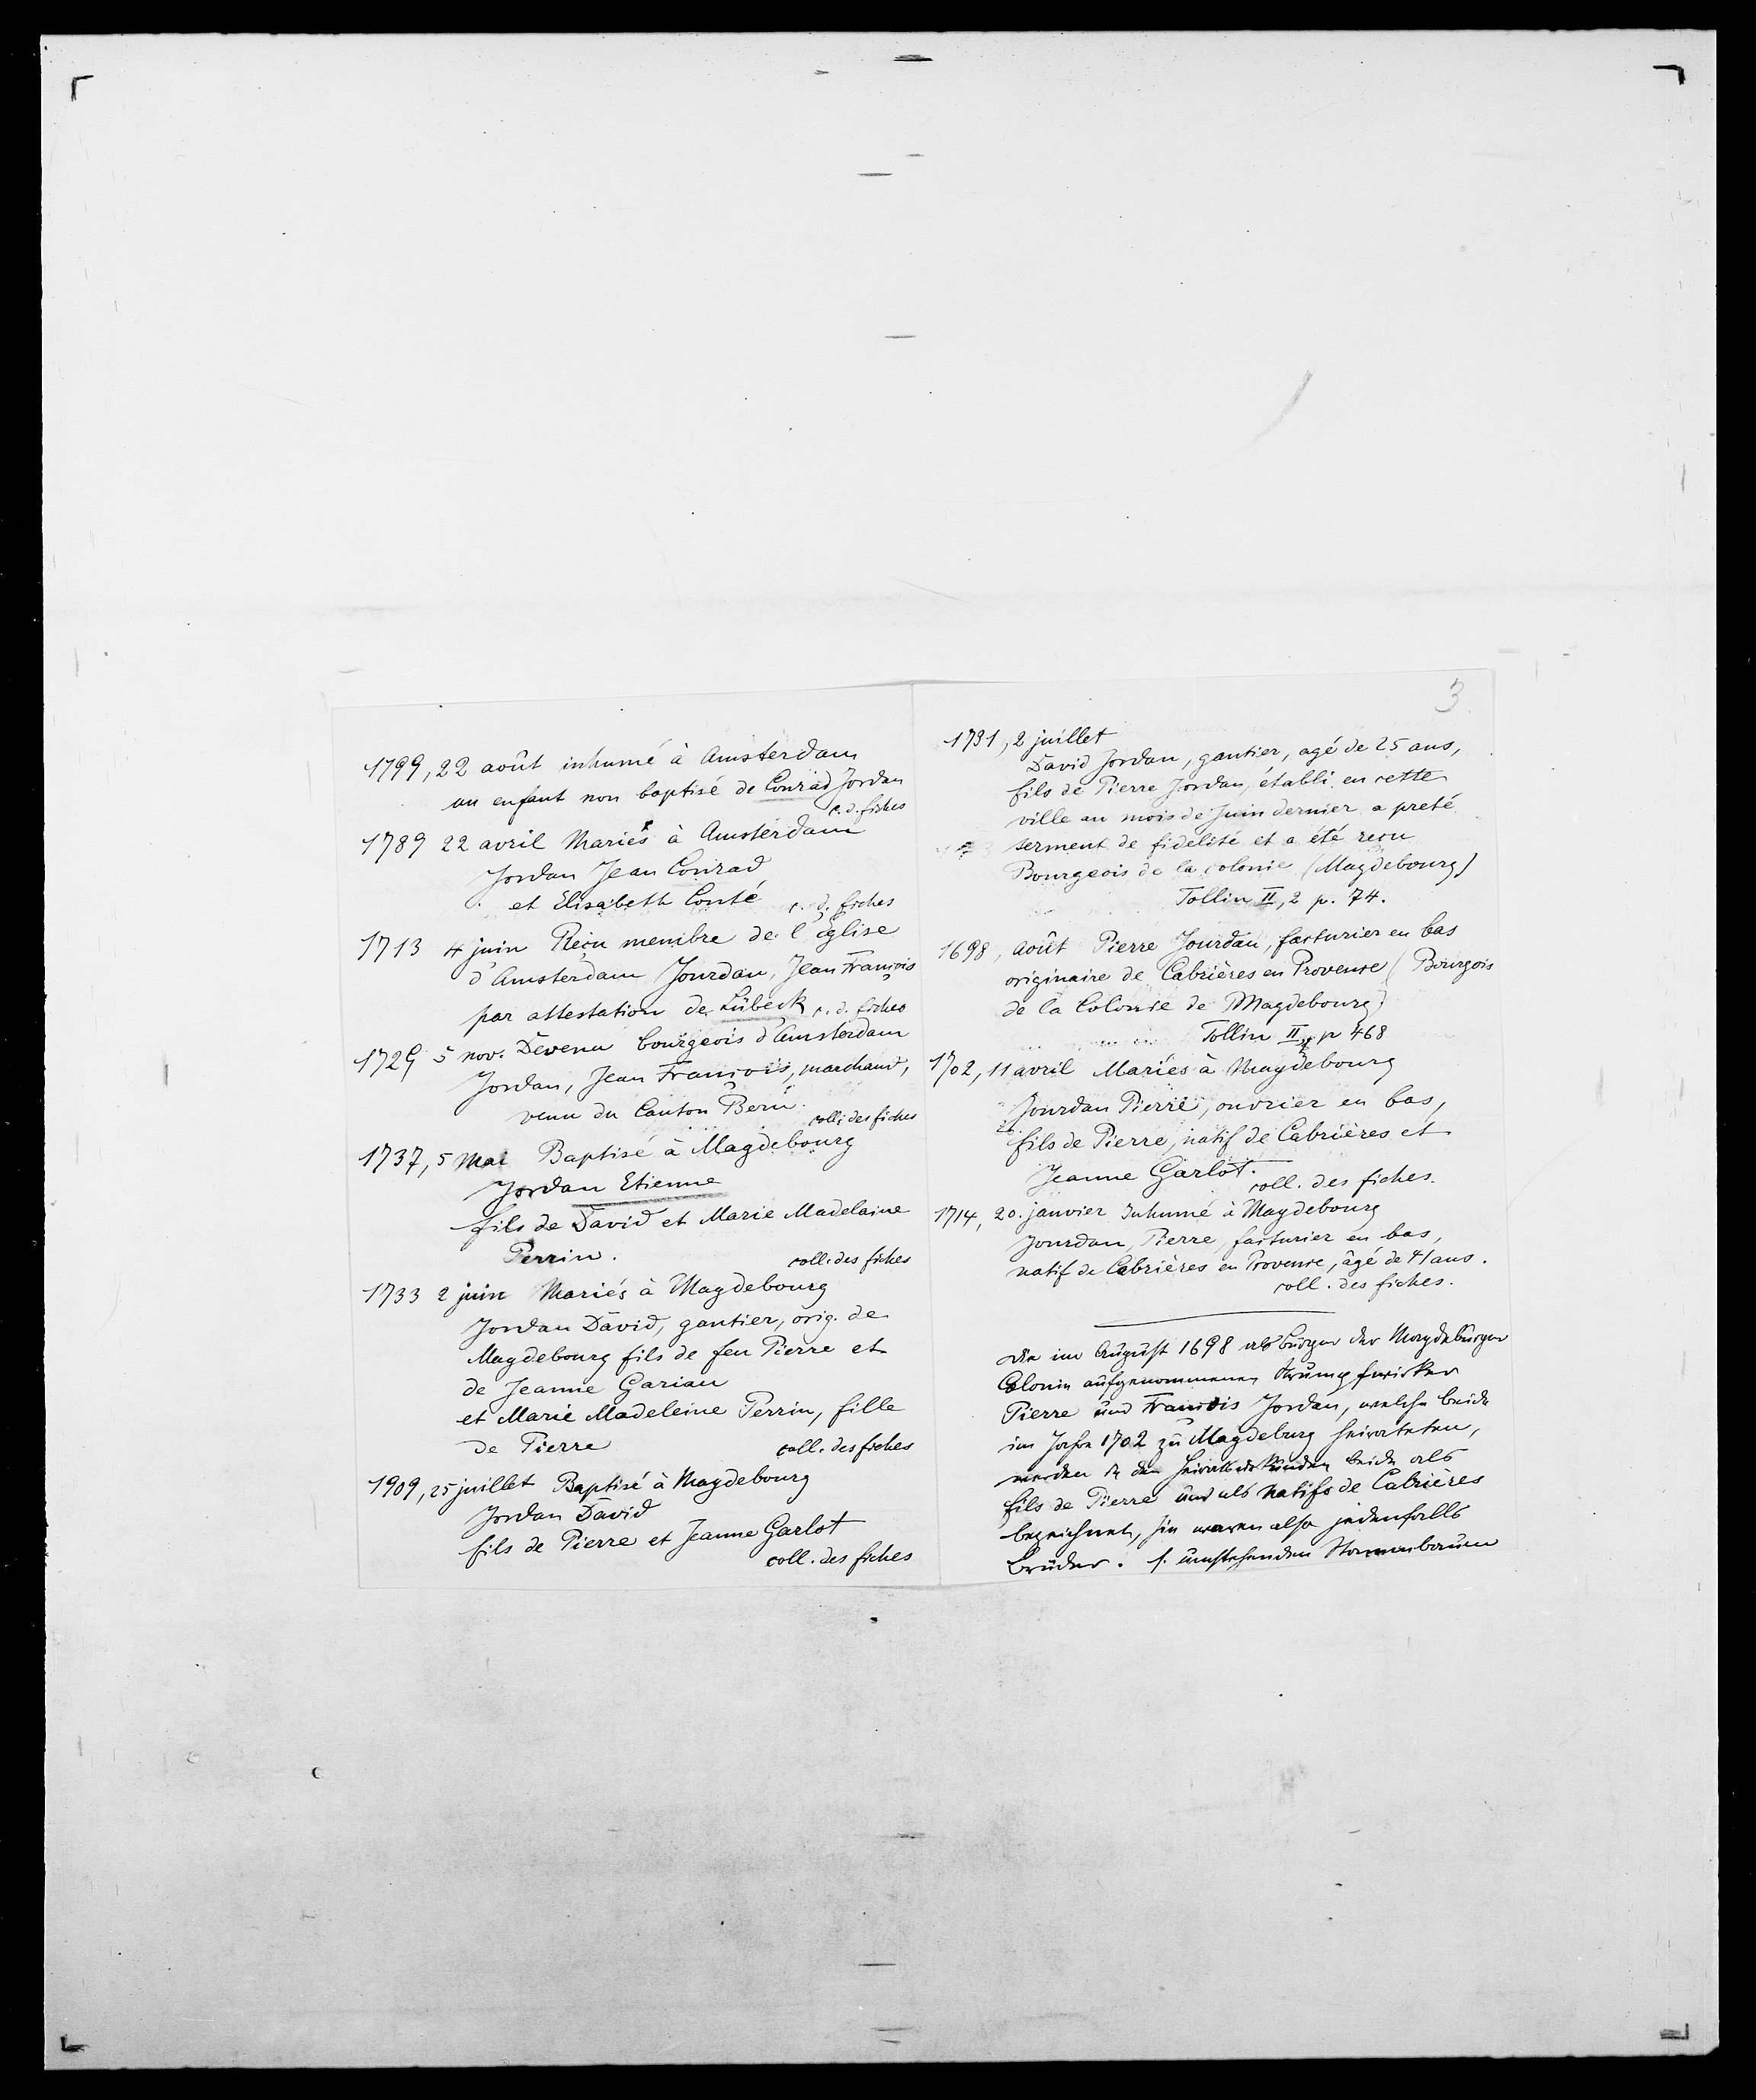 1799, 22 août inhumé à Amsterdam
un enfant non baptisé de Conrad Jordan
c. d. fiches
1789 22 avril Mariés à Amsterdam
Jordan Jean Conrad
et Elisabeth Conté c. d. fiches
1713 4 juin Reçu membre de l'église
d'Amsterdam Jourdan, Jean François
par attestation de Lübeck c. d. fiches
1729 5 nov. Devenu bourgeois d'Amsterdam
Jordan, Jean François, marchand,
venu du Canton Bern.
coll. des fiches
1737, 5 Mai Baptisé à Magdebourg
Jordan Etienne
fils de David et Marie Madelaine
Perrin. coll. des fiches
1733 2 juin Mariés à Magdebourg
Jordan David, gantier, orig. de
Magdebourg fils de feu Pierre et
de Jeanne Garian
et Marie Madeleine Perrin, fille
de Pierre coll. des fiches
1909, 25 juillet Baptisé à Magdebourg
Jordan David
fils de Pierre et Jeanne Garlot
coll. des fiches
3
1731, 2 juillet
David Jordan, gantier, agé de 25 ans,
fils de Pierre Jordan, établi en cette
ville au mois de Juin dernier a preté
serment de fidelité et a été reçu
Bourgeois de la colonie (Magdebourg)
Tollin II, 2 p. 74.
1698, Août Pierre Jourdan, facturier en bas
originaire de Cabrières en Provence (Bourgois
de la Colonie de Magdebourg)
Tollin II, p 468
1702, 11 avril Mariés à Magdebourg
Jourdan Pierre, ouvrier en bas,
fils de Pierre, natif de Cabrières et
Jeanne Garlot.
coll. des fiches.
1714, 20. janvier Inhumé à Magdebourg
Jourdan, Pierre, facturier en bas,
natif de Cabrières en Provence, âgé de 41 ans.
coll. des fiches.
Die im August 1698 als Bürger der Magdeburger
Colonie aufgenommenen Strumpfwirker
Pierre und François Jordan, welche beide
im Jahre 1702 zu Magdeburg heirateten,
werden in den Heiratsurkunden beide als
fils de Pierre und als natifs de Cabrières
bezeichnet, sie waren also jedenfalls
Brüder. s. umstehenden Stammbaum